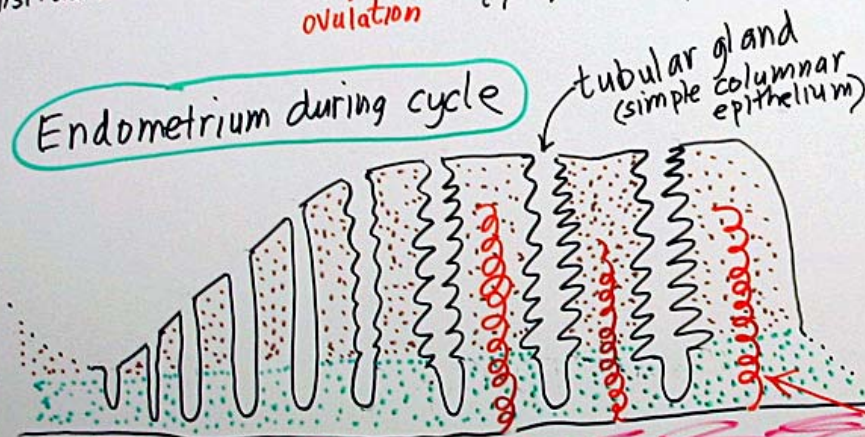 ovulation
Endometrium during cycle
tubular gland
(simple columnar
epithelium)